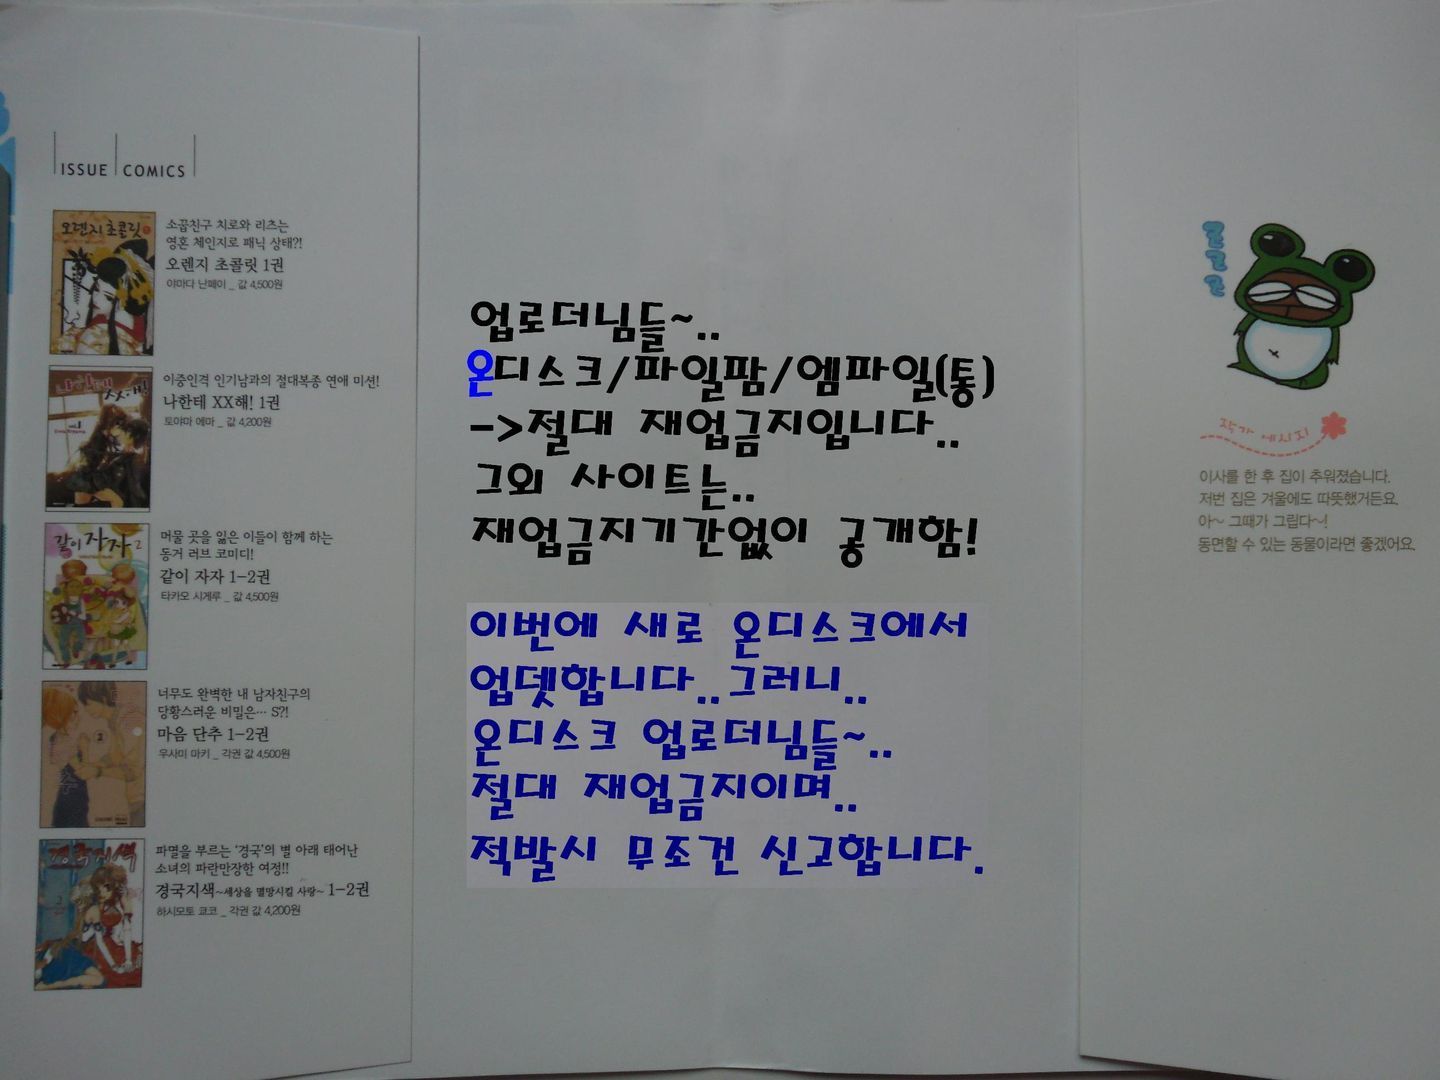 ISSUE COMICS
오렌지 초콜릿
소꿉친구 치로와 리츠는
영혼 체인지로 패닉 상태?!
오렌지 초콜릿 1권
야마다 난페이 _ 값 4,500원
이중인격 인기남과의 절대복종 연애 미션!
나한테 XX해! 1권
토야마 에마 _ 값 4,200원
같이 자자 2
머물 곳을 잃은 이들이 함께 하는
동거 러브 코미디!
같이 자자 1-2권
타카오 시게루 _ 값 4,500원
너무도 완벽한 내 남자친구의
당황스러운 비밀은… S?!
마음 단추 1-2권
우사미 마키 _ 각권 값 4,500원
경국지색
파멸을 부르는 '경국'의 별 아래 태어난
소녀의 파란만장한 여정!!
경국지색~세상을 멸망시킬 사랑~ 1-2권
하시모토 쿄코 _ 각권 값 4,200원
업로더님들~..
온디스크/파일팜/엠파일(통)
->절대 재업금지입니다..
그외 사이트는..
재업금지기간없이 공개함!
이번에 새로 온디스크에서
업뎃합니다..그러니..
온디스크 업로더님들~..
절대 재업금지이며..
적발시 무조건 신고합니다.
작가 메시지
이사를 한 후 집이 추워졌습니다.
저번 집은 겨울에도 따뜻했거든요.
아~ 그때가 그립다~!
동면할 수 있는 동물이라면 좋겠어요.